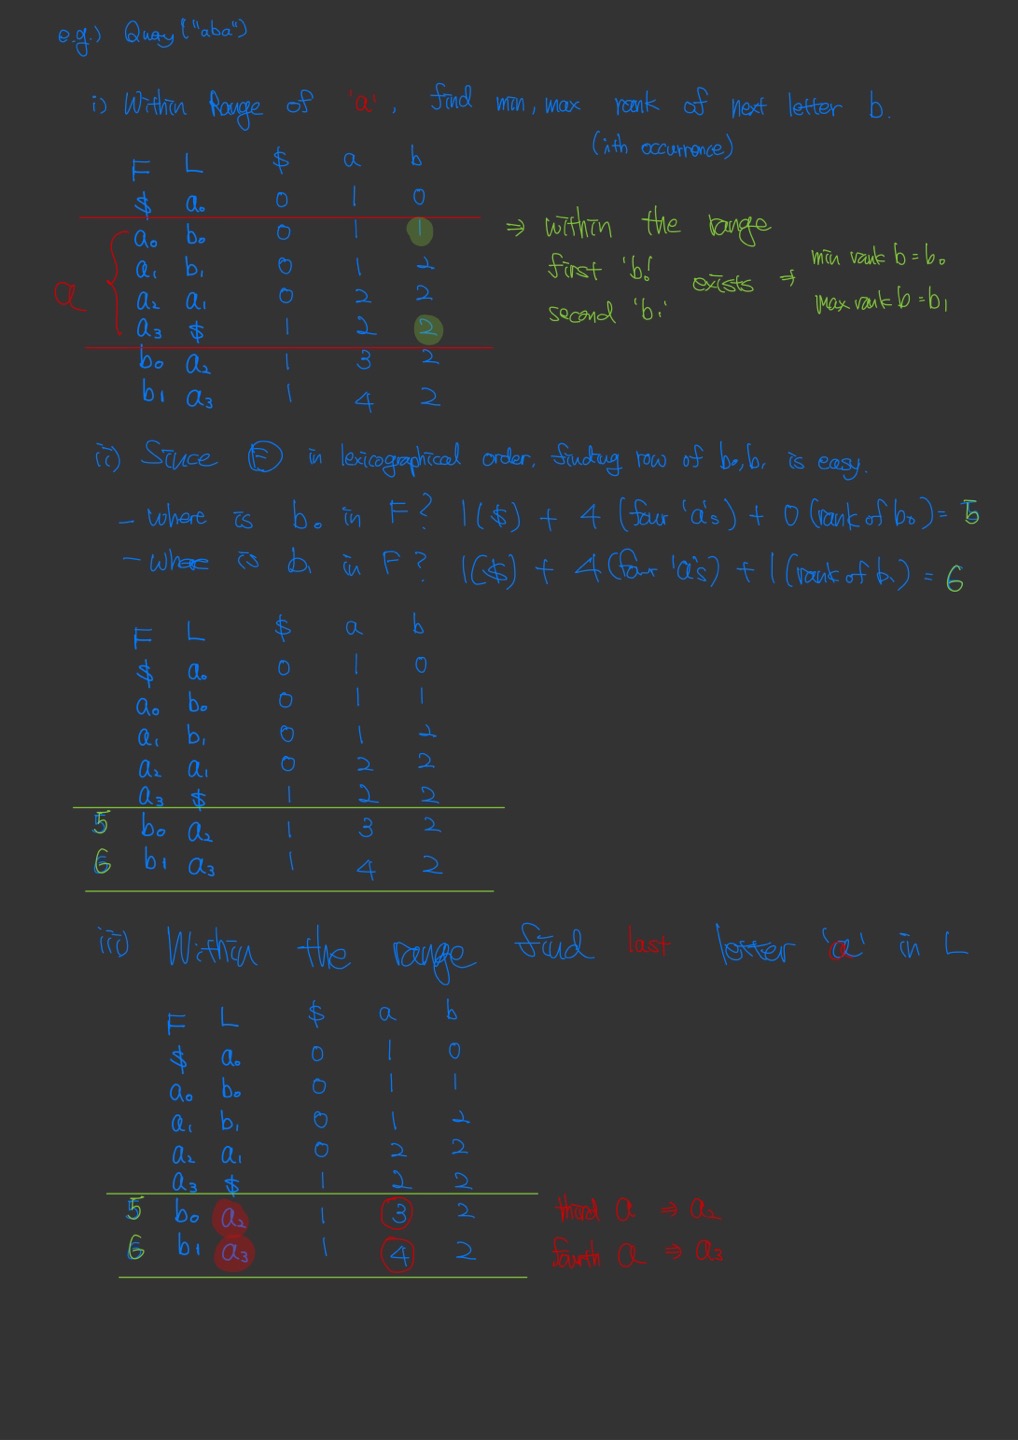 e.g.) Query("aba")
i) Within Range of 'a', find min, max rank of next letter b.
(ith occurrence)
F L $ a b
$ a₀ 0 1 0
a₀ b₀ 0 1 1
a₁ b₁ 0 1 2
a₂ a₁ 0 2 2
a₃ $ 1 2 2
b₀ a₂ 1 3 2
b₁ a₃ 1 4 2
a
⇒ within the range
first 'b₀'
second 'b₁'
exists ⇒
min rank b = b₀
max rank b = b₁
ii) Since F in lexicographical order, finding row of b₀, b₁ is easy.
- where is b₀ in F? 1($) + 4 (four 'a's) + 0 (rank of b₀) = 5
- where is b₁ in F? 1($) + 4 (four 'a's) + 1 (rank of b₁) = 6
F L $ a b
$ a₀ 0 1 0
a₀ b₀ 0 1 1
a₁ b₁ 0 1 2
a₂ a₁ 0 2 2
a₃ $ 1 2 2
5 b₀ a₂ 1 3 2
6 b₁ a₃ 1 4 2
iii) Within the range find last letter 'a' in L
F L $ a b
$ a₀ 0 1 0
a₀ b₀ 0 1 1
a₁ b₁ 0 1 2
a₂ a₁ 0 2 2
a₃ $ 1 2 2
5 b₀ a₂ 1 3 2 third a ⇒ a₂
6 b₁ a₃ 1 4 2 fourth a ⇒ a₃